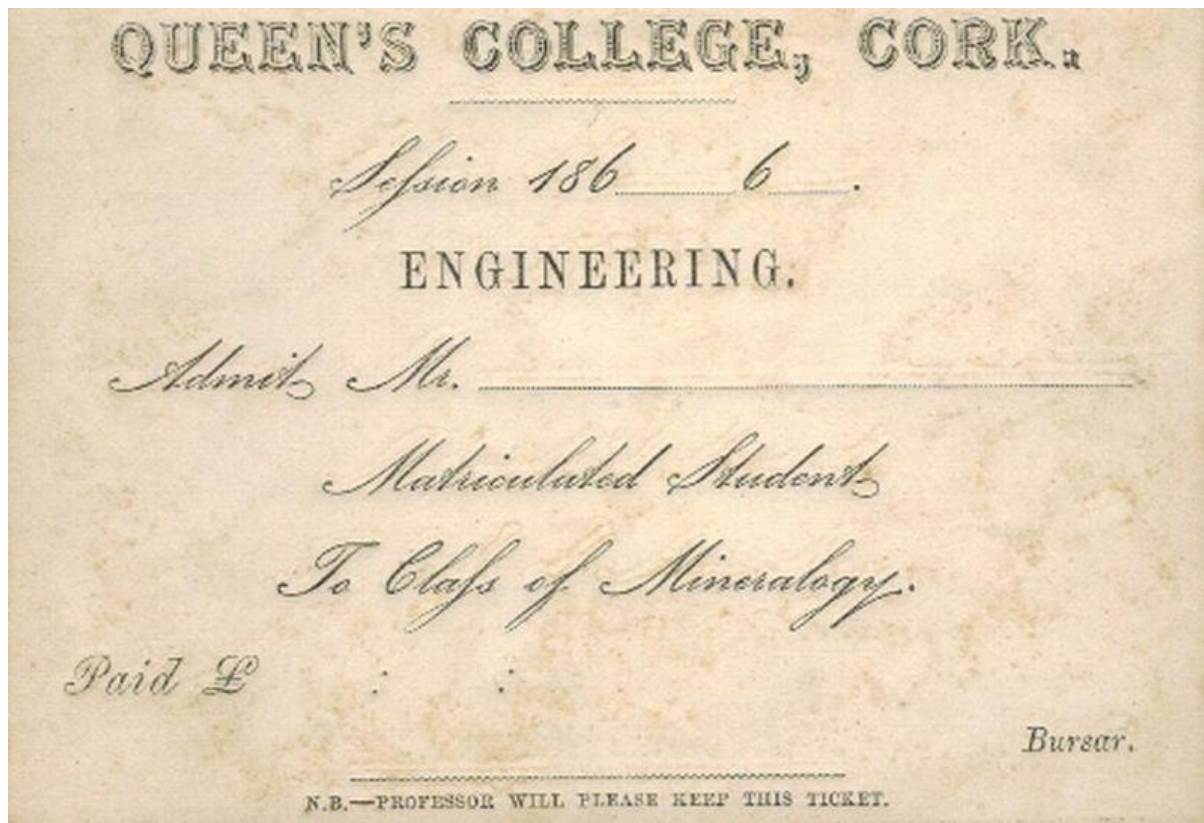 QUEEN'S COLLEGE, CORK.
Seſsion 186 6 .
ENGINEERING.
Admit Mr.
Matriculated Student
To Claſs of Mineralogy.
Paid £ : :
Bursar.
N.B.—PROFESSOR WILL PLEASE KEEP THIS TICKET.